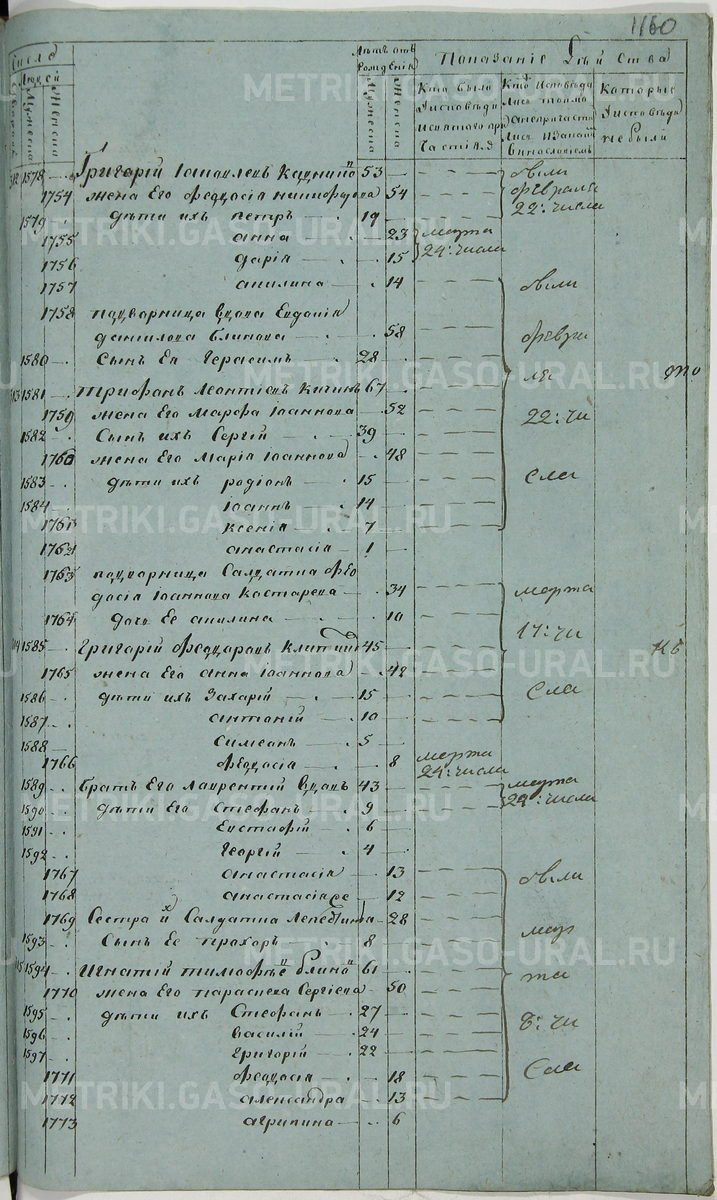 1160
Числѣ
Людей
Мужеска
Женска
Лѣтъ отъ рожденія
Мужеска
Женска
Показаніе Дѣйства
Кто были у исповѣди и святаго причастія
Которые у исповѣди не были
1578 Григорій 53
1754 жена Его Феодосія 54
1579 дѣти ихъ петръ 19
1755 анна 23
1756 дарія 15
1757 акилина 14
были февраля 22: числа
марта 24: числа
1758 подворница вдова Евдокія
данилова блинова 58
1580 Сынъ Ея Герасимъ 28
1581 трифанъ Леонтіевъ 67
1759 жена Его Марфа Іоаннова 52
1582 Сынъ ихъ Сергій 39
1760 жена Его Марія Іоаннова 48
1583 дѣти ихъ родіонъ 15
1584 Іоаннъ 14
1761 ксенія 7
1762 анастасія 1
были февра ля 22: чи сла
1763 подворница Салдатка Фео
досія Іоаннова Костарева 34
1764 дочь Ее акилина 10
1585 Григорій Феодоровъ 45
1765 жена Его анна Іоаннова 42
1586 дѣти ихъ Захарій 15
1587 антоній 10
1588 Симеонъ 5
1766 Феодосія 8
марта 17: чи Сла
марта 24: числа
1589 братъ Его Лаврентій вдовъ 43
1590 дѣти Его Стефанъ 9
1591 Евстафій 6
1592 Георгій 4
1767 анастасія 13
1768 анастасія 12
марта 24: числа
1769 Сестра их Салдатка 28
1593 Сынъ Ее прохоръ 8
1594 Игнатій тимофѣевъ блиновъ 61
1770 жена Его параскева Сергіева 50
1595 дѣти ихъ Стефанъ 27
1596 василій 24
1597 Григорій 22
1771 Феодосія 18
1772 александра 13
1773 агрипина 6
были мар та 8: чи Сла
METRIKI.GASO-URAL.RU